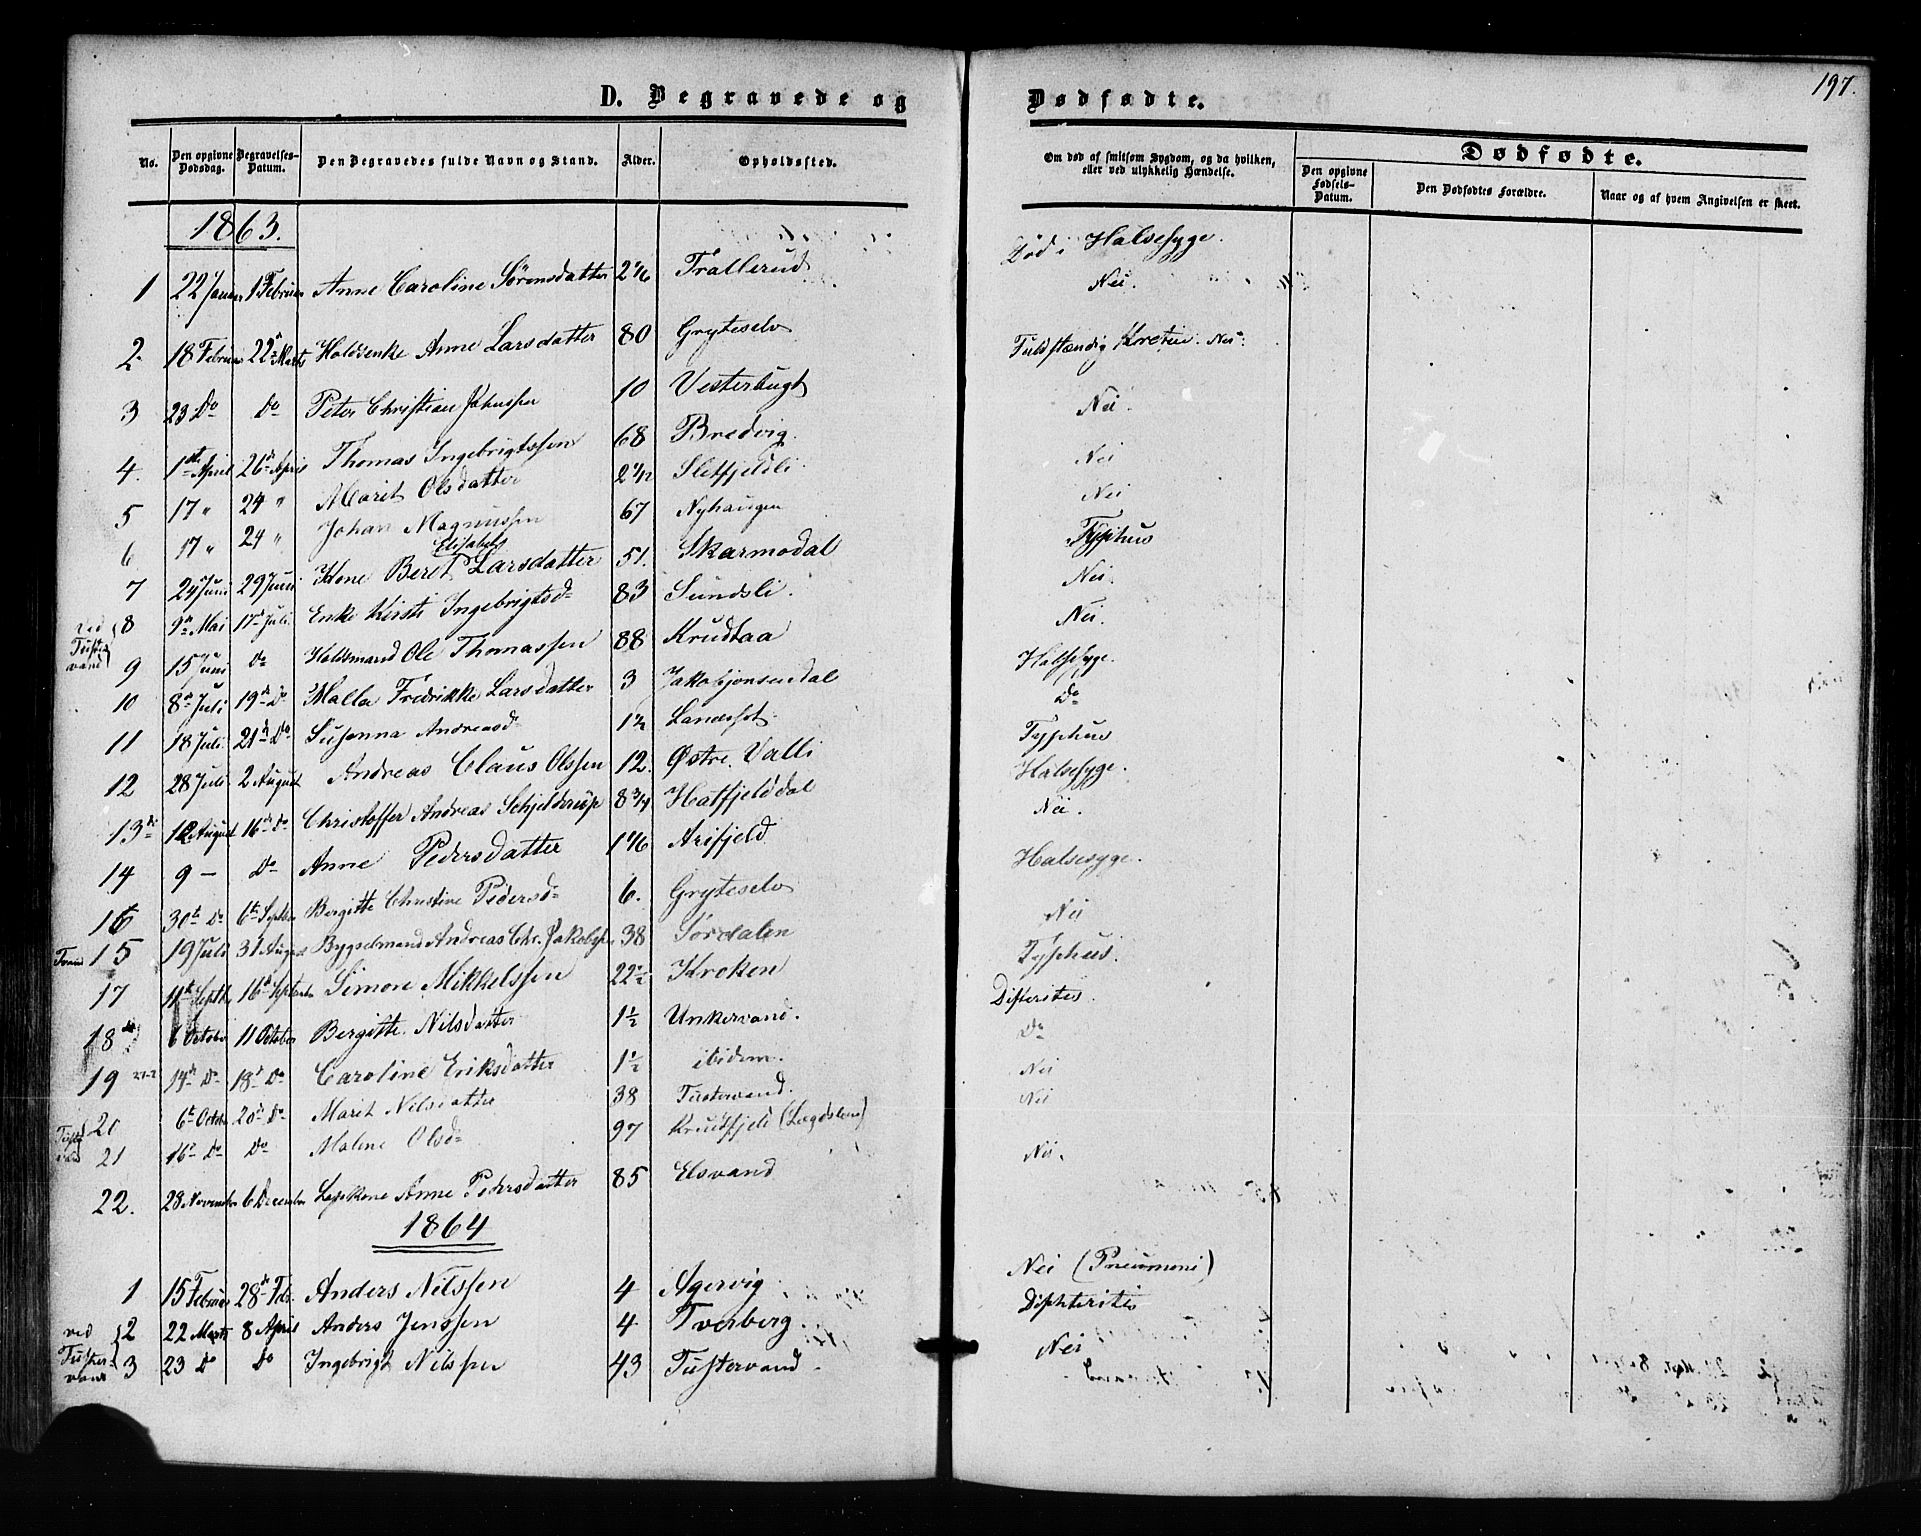 D. Begravede og Dødfødte.
197.
No. Den opgivne Dødsdag. Begravelses-Datum. Den Begravedes fulde Navn og Stand. Alder. Opholdssted. Om død af smitsom Sygdom, og da hvilken, eller ved ulykkelig Hændelse. Dødfødte. Den opgivne Fødsels-Datum. Den Dødfødtes Forældre. Naar og af hvem Angivelsen er skeet.
1863.
1 22 Januar 1 Februar Anne Caroline Sørensdatter 2 1/6 Trallerud Død i Halsesyge.
2. 18 Februar 22 Marts Anne Larsdatter 80 Gryteselv Nei.
3 23 Do Do Peter Christian Johnssen 10 Vesterbugt Fuldstændig Kretin. Nei.
4. 1ste April 26de April Thomas Ingebrigtssen 68 Bredvig. Nei.
5 17 " 24 " Marit Olsdatter 2 1/12 Sletfjeldli. Nei
6 17 " 24 " Johan Magnussen 67 Nyhaugen Nei
7 24 Juni 29 Juni Kone Beret Elisabeth Larsdatter 51. Skarmodal Typhus
ved Tustervand 8 9de Mai 17de Juli Enke Kirsti Ingebrigtsd 83 Sundsli. Nei.
9 15 Juni Do Ole Thomassen 88 Krudtaa Nei.
10 8de Juli 19de Do Malla Fredrikke Larsdatter 3 Jakobjonsendal Halsesyge.
11 18 Juli 21de Do Susanna Andreasd 1 1/2 Do
12 28 Juli 2 August Andreas Claus Olssen 12. Østre Valli Typhus
13de 12 August 16de Do Christoffer Andreas Schjelderup 8 3/4 Hatfjelddal Halsesyge.
14 9 — Do Anne Pedersdatter 1 1/6 Arifjeld Nei.
16 30te Do 6te Septbr Bergitte Christine Pedersd 6. Gryteselv Halsesyge.
15 19 Juli 31 August Bygselmand Andreas Chr. Jakobssen 38 Sørdalen Nei
17 11te Septbr 16de September Simon Mikkelssen 22 1/2 Kroken Typhus.
18de 6 October 11 October Bergitte Nilsdatter 1 1/2 Unkervand. Difterites.
19 14de Do 18de Do Caroline Eriksdatter 1 1/2 ibidem. Do
20 6te Octobr 20de Do Marit Nilsdatter 38 Tustervand. Nei
21 16de Do Do Malene Olsd 97 Krudtfjeld (Lægdslem) Nei
22. 28 November 6 December Anne Pedersdatter 85 Elsvand Nei.
1864
1 15 Februar 28de Febr. Anders Nilssen 4 Agervig Nei (Pneumoni)
ved Tustervand 2 22 Marts 8 April Anders Jenssen 4 Tverberg. Diphterites
3 23 Do Do Ingebrigt Nilssen 43 Tustervand. Nei